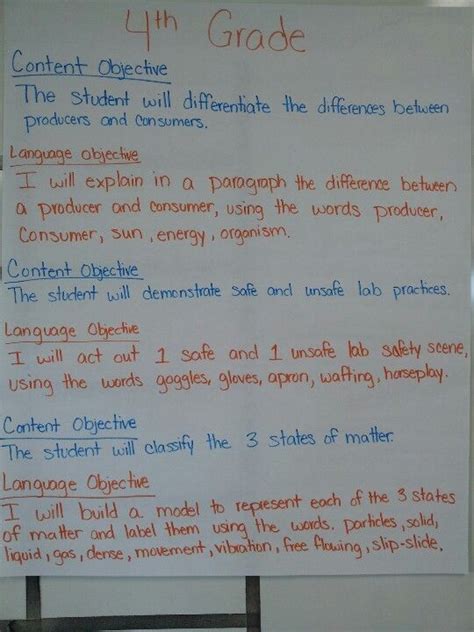 4th Grade
Content Objective
The student will differentiate the differences between
producers and consumers.
Language objective
I will explain in a paragraph the difference between
a producer and consumer, using the words producer,
Consumer, sun, energy, organism.
Content Objective
The student will demonstrate safe and unsafe lab practices.
Language Objective
I will act out 1 safe and 1 unsafe lab safety scene,
using the words goggles, gloves, apron, wafting, horseplay.
Content Objective
The student will classify the 3 states of matter.
Language Objective
I will build a model to represent each of the 3 states
of matter and label them using the words. particles, solid,
liquid, gas, dense, movement, vibration, free flowing, slip-slide.